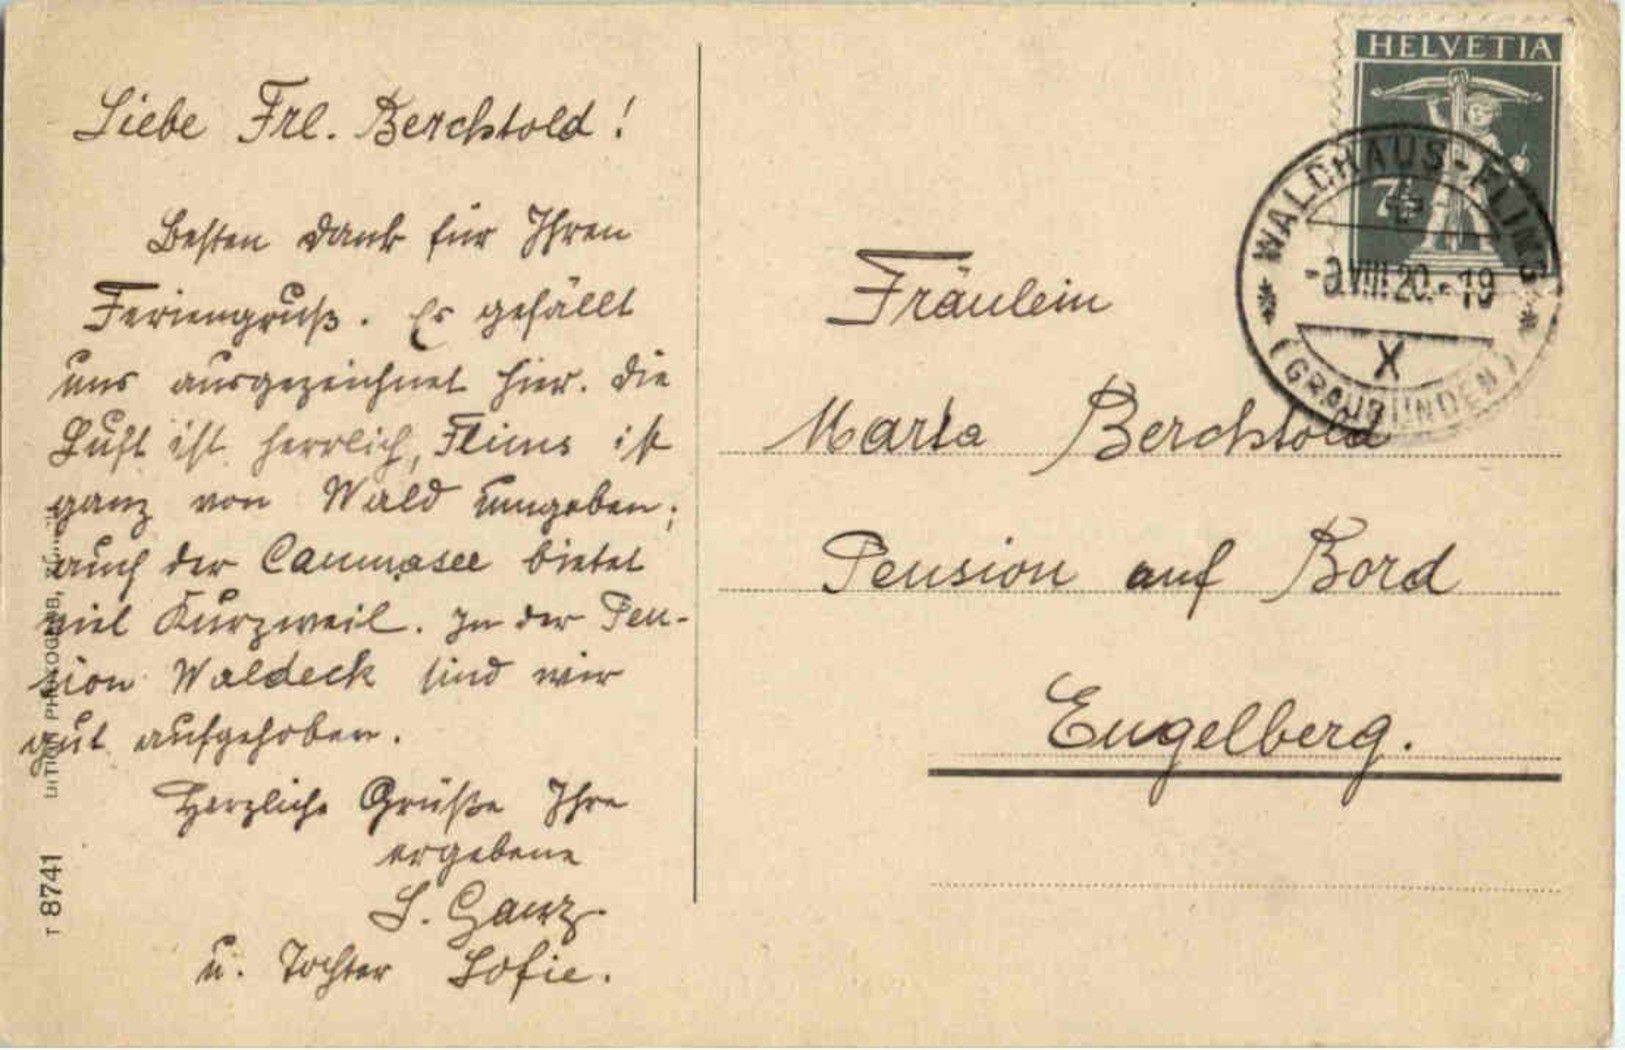 Liebe Frl. Berchtold!
Besten Dank für Ihren
Feriengruß. Es gefällt
uns ausgezeichnet hier. Die
Luft ist herrlich, Flims ist
ganz von Wald umgeben;
auch der Caumasee bietet
viel Kurzweil. In der Pen-
sion Waldeck sind wir
gut aufgehoben.
Herzliche Grüße Ihre
ergebene
S. Ganz
u. Tochter Sofie.
T 8741
HELVETIA
7½
WALDHAUS-FLIMS
-9.VIII.20.-19
X
(GRAUBÜNDEN)
Fräulein
Marta Berchtold
Pension auf Bord
Engelberg.